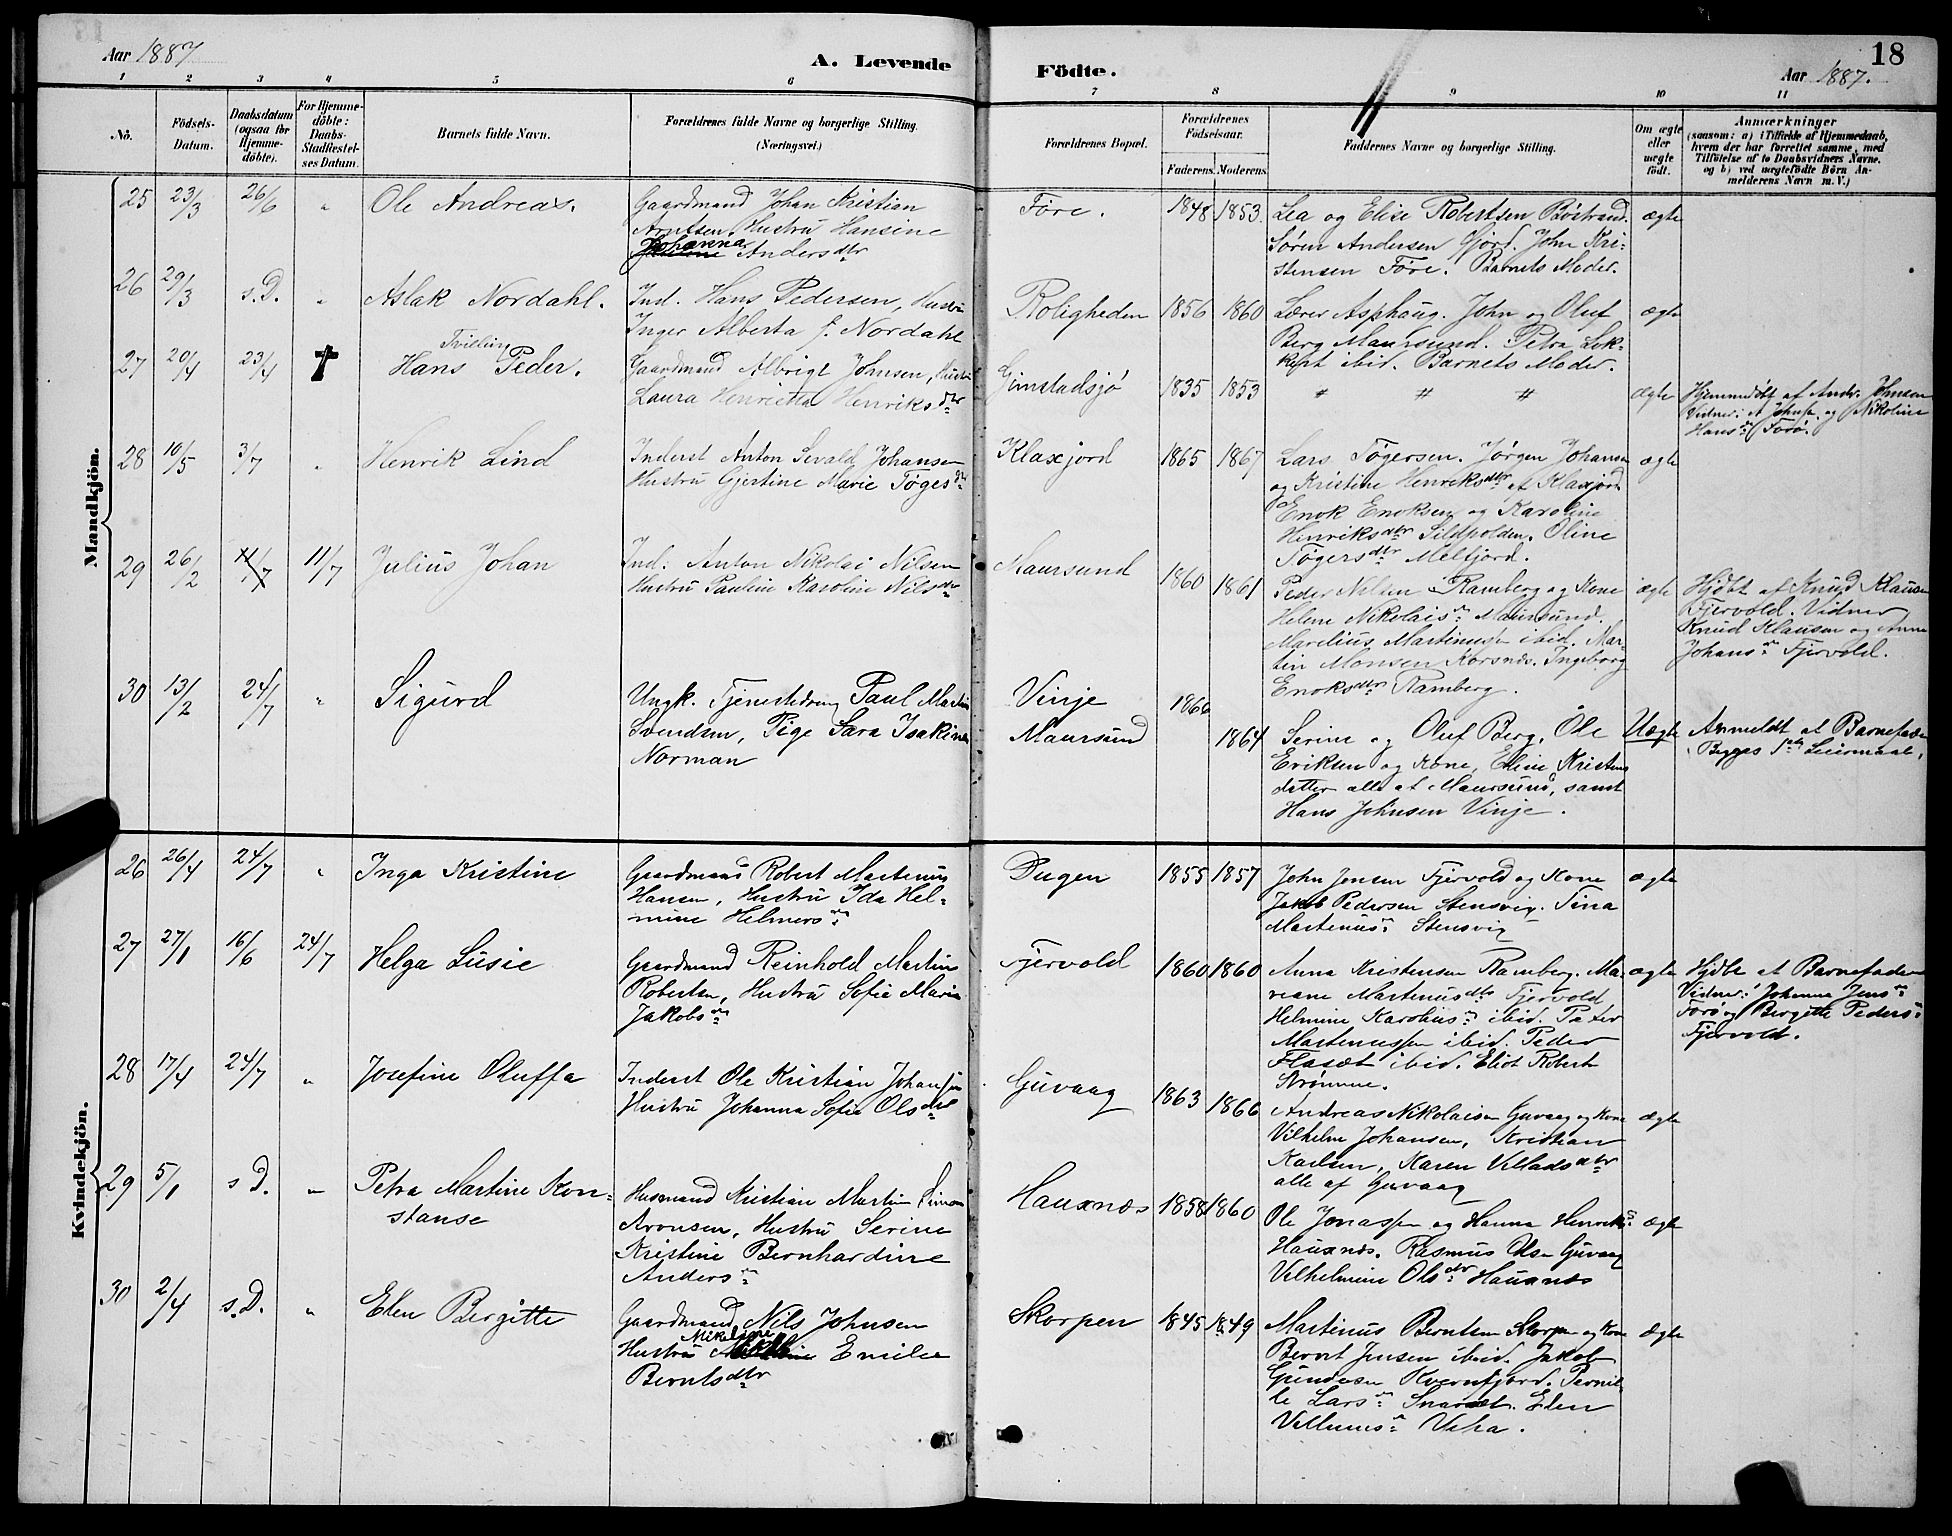 Aar 1887
A. Levende Födte.
Aar 1887.
18
1 2 3 4 5 6 7 8 9 10 11
No.
Födsels-Datum.
Daabsdatum (ogsaa for Hjemmedöbte).
For Hjemmedöbte: Daabs-Stadfæstelses Datum.
Barnets fulde Navn.
Forældrenes fulde Navne og borgerlige Stilling. (Næringsvei.)
Forældrenes Bopæl.
Forældrenes Födselsaar.
Faderens. Moderens.
Faddernes Navne og borgerlige Stilling.
Om ægte eller uægte födt.
Anmærkninger
(saasom: a) i Tilfælde af Hjemmedaab, hvem der har forrettet samme, med Tilföielse af to Daabsvidners Navne, og b) ved uægtefödte Börn Anmelderens Navn m. V.)
Mandkjön.
25 23/3 26/6 " Ole Andreas.
Gaardmand Johan Kristian
Arntsen, Hustru Hansine
Johanna Andersdtr
Före. 1848 1853
Lea og Elise Robertsen Böstrand.
Sören Andersen Gjörd. John Kri-
stensen Före. Barnets Moder.
ægte
26 29/3 s.D. " Aslak Nordahl.
Ind. Hans Pedersen, Hustru
Inger Alberta f. Nordahl
Roligheden 1856 1860
Lærer Asphaug. John og Oluf
Berg Maursund. Petra Lok-
kert ibid. Barnets Moder.
ægte
27 20/4 23/4 † Tvilling
Hans Peder.
Gaardmand Albrigt Johnsen, Hustru
Laura Henrietta Henriksdtr
Gimstadsjö 1835 1853 " " " ægte
Hjemmedöbt af Andr. Johnsen
Vidner: A Johns. og Nikoline
Hansdr Forö.
28 10/5 3/7 " Henrik Lind
Inderst Anton Sevald Johansen
Hustru Gjertine Marie Tøgersdtr
Klaxjord 1865 1867
Lars Tøgersen. Jørgen Johansen
og Kristine Henriksdtr af Klaxjord
Enok Enoksen og Karoline
Henriksdtr Sildpolden. Oline
Tøgersdtr Melfjord.
ægte
29 26/2 11/7 Julius Johan
Ind. Anton Nikolai Nilsen
Hustru Pauline Karoline Nilsdr
Maursund 1860 1861
Peder Nilsen Ramberg og Kone
Helene Nikolaisdr Maursund.
Marelius Martinussen ibid. Mar-
tin Monsen Korsnæs. Ingeborg
Enoksdtr Ramberg.
ægte
Hjdbt af Knud Klausen
Fjervold. Vidner
Knud Klausen og Anne
Johansdr Fjervold.
30 13/2 24/7 " Sigurd
Ungk. Tjenestedreng Paul Martin
Svendsen, Pige Sara Joakine
Norman
Vinje 1866
Maursund 1864
Serine og Oluf Berg, Ole
Eriksen og Kone, Eline Kristens
datter alle af Maursund, samt
Hans Johnsen Vinje.
Uægte
Anmeldt af Barnefader
Begges 1ste Leiermaal.
Kvindekjön.
26 26/4 24/7 " Inga Kristine
Gaardmand Robert Martinus
Hansen, Hustru Ida Hel-
mine Helmersdr
Dugen 1855 1857
John Jensen Fjervold og Kone
Jakob Pedersen Stensvig. Tina
Martinusdr Stensvig
ægte
27 27/1 16/6 24/7 Helga Lusie
Gaardmand Reinhold Martin
Robertsen, Hustru Sofie Marie
Jakobsdr
Fjervold 1860 1860
Anna Kristensen Ramberg. Ma-
reane Martinusdtr Fjervold
Helmine Karoliusdr ibid. Peter
Martinussen ibid. Peder
Flasæt ibid. Eliot Roberts
Strömme.
ægte
Hjdbt af Barnefaderen
Vidner: Johanna Jensdr
Forö og Bergitte Pedersdr
Fjervold.
28 17/4 24/7 " Josefine Oluffa
Inderst Ole Kristian Johansen
Hustru Johanna Sofie Olsdtr
Guvaag 1863 1866
Andreas Nikolaisen Guvaag og Kone
Vilhelm Johansen, Kristian
Karlsen, Karen Villadsdtr
alle af Guvaag
ægte
29 5/1 s D. " Petra Martine Kon-
stanse
Husmand Kristian Martin Simon
Aronsen, Hustru Serine
Kristine Bernhardine
Andersdr
Hauxnæs 1858 1860
Ole Jonassen og Hanna Henriksdr
Hauxnæs. Rasmus Olsen Guvaag
Vilhelmine Olsdtr Hauxnæs
ægte
30 2/4 s.D. " Elen Bergitte
Gaardmand Nils Johnsen
Hustru Mikeline Emilie
Berntsdtr
Skorpen 1845 1849
Martinus Berntsen Skorpen og Kone
Bernt Jensen ibid. Jakob
Gundesen Kvernfjord. Pernil-
le Larsdr Snarset. Elen
Villumsdr Vika.
ægte